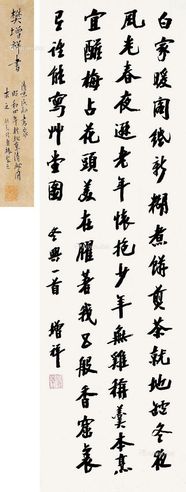 白家暖閣紙新糊煮餅煎茶就地鑪冬夜
風光春夜遜老年懷抱少年無雞稱羹本烹
宜醯梅占花頭美在臞著我五般香窟裏
能寫艸堂圖 冬興一首 增祥
樊增祥書